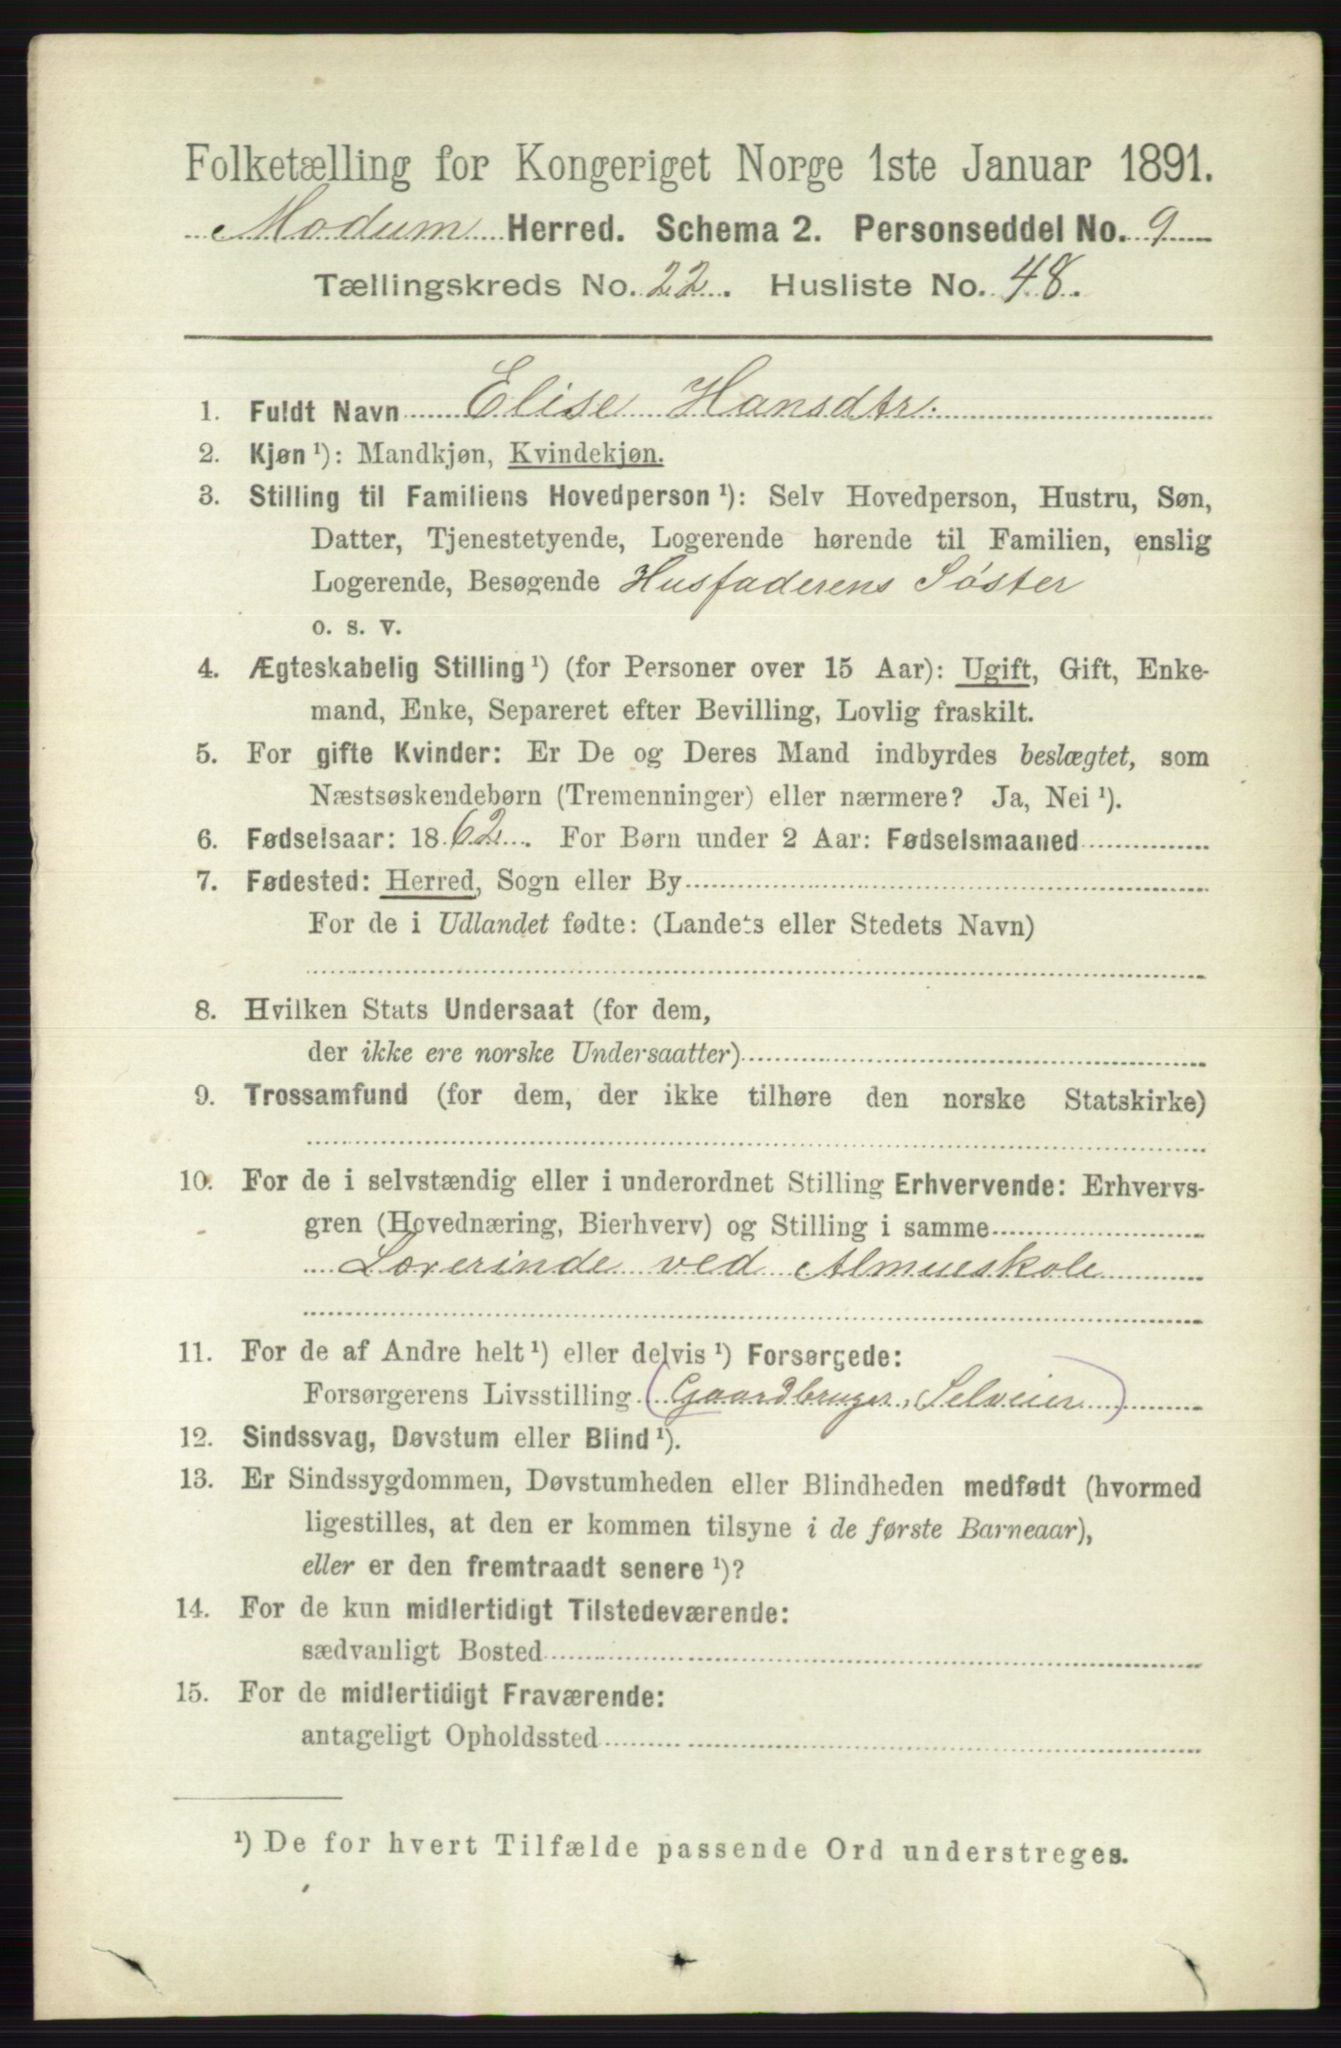 Folketælling for Kongeriget Norge 1ste Januar 1891.
Modum Herred. Schema 2. Personseddel No. 9
Tællingskreds No. 22. Husliste No. 48.
1. Fuldt Navn Elise Hansdtr.
2. Kjøn ¹): Mandkjøn, Kvindekjøn.
3. Stilling til Familiens Hovedperson ¹): Selv Hovedperson, Hustru, Søn,
Datter, Tjenestetyende, Logerende hørende til Familien, enslig
Logerende, Besøgende Husfaderens Søster
o. s. v.
4. Ægteskabelig Stilling ¹) (for Personer over 15 Aar): Ugift, Gift, Enke-
mand, Enke, Separeret efter Bevilling, Lovlig fraskilt.
5. For gifte Kvinder: Er De og Deres Mand indbyrdes beslægtet, som
Næstsøskendebørn (Tremenninger) eller nærmere? Ja, Nei ¹).
6. Fødselsaar: 1862. For Børn under 2 Aar: Fødselsmaaned
7. Fødested: Herred, Sogn eller By
For de i Udlandet fødte: (Landets eller Stedets Navn)
8. Hvilken Stats Undersaat (for dem,
der ikke ere norske Undersaatter)
9. Trossamfund (for dem, der ikke tilhøre den norske Statskirke)
10. For de i selvstændig eller i underordnet Stilling Erhvervende: Erhvervs-
gren (Hovednæring, Bierhverv) og Stilling i samme
Lærerinde ved Almueskole
11. For de af Andre helt ¹) eller delvis ¹) Forsørgede:
Forsørgerens Livsstilling (Gaardbruger, Selveier)
12. Sindssvag, Døvstum eller Blind ¹).
13. Er Sindssygdommen, Døvstumheden eller Blindheden medfødt (hvormed
ligestilles, at den er kommen tilsyne i de første Barneaar),
eller er den fremtraadt senere ¹)?
14. For de kun midlertidigt Tilstedeværende:
sædvanligt Bosted
15. For de midlertidigt Fraværende:
antageligt Opholdssted
¹) De for hvert Tilfælde passende Ord understreges.